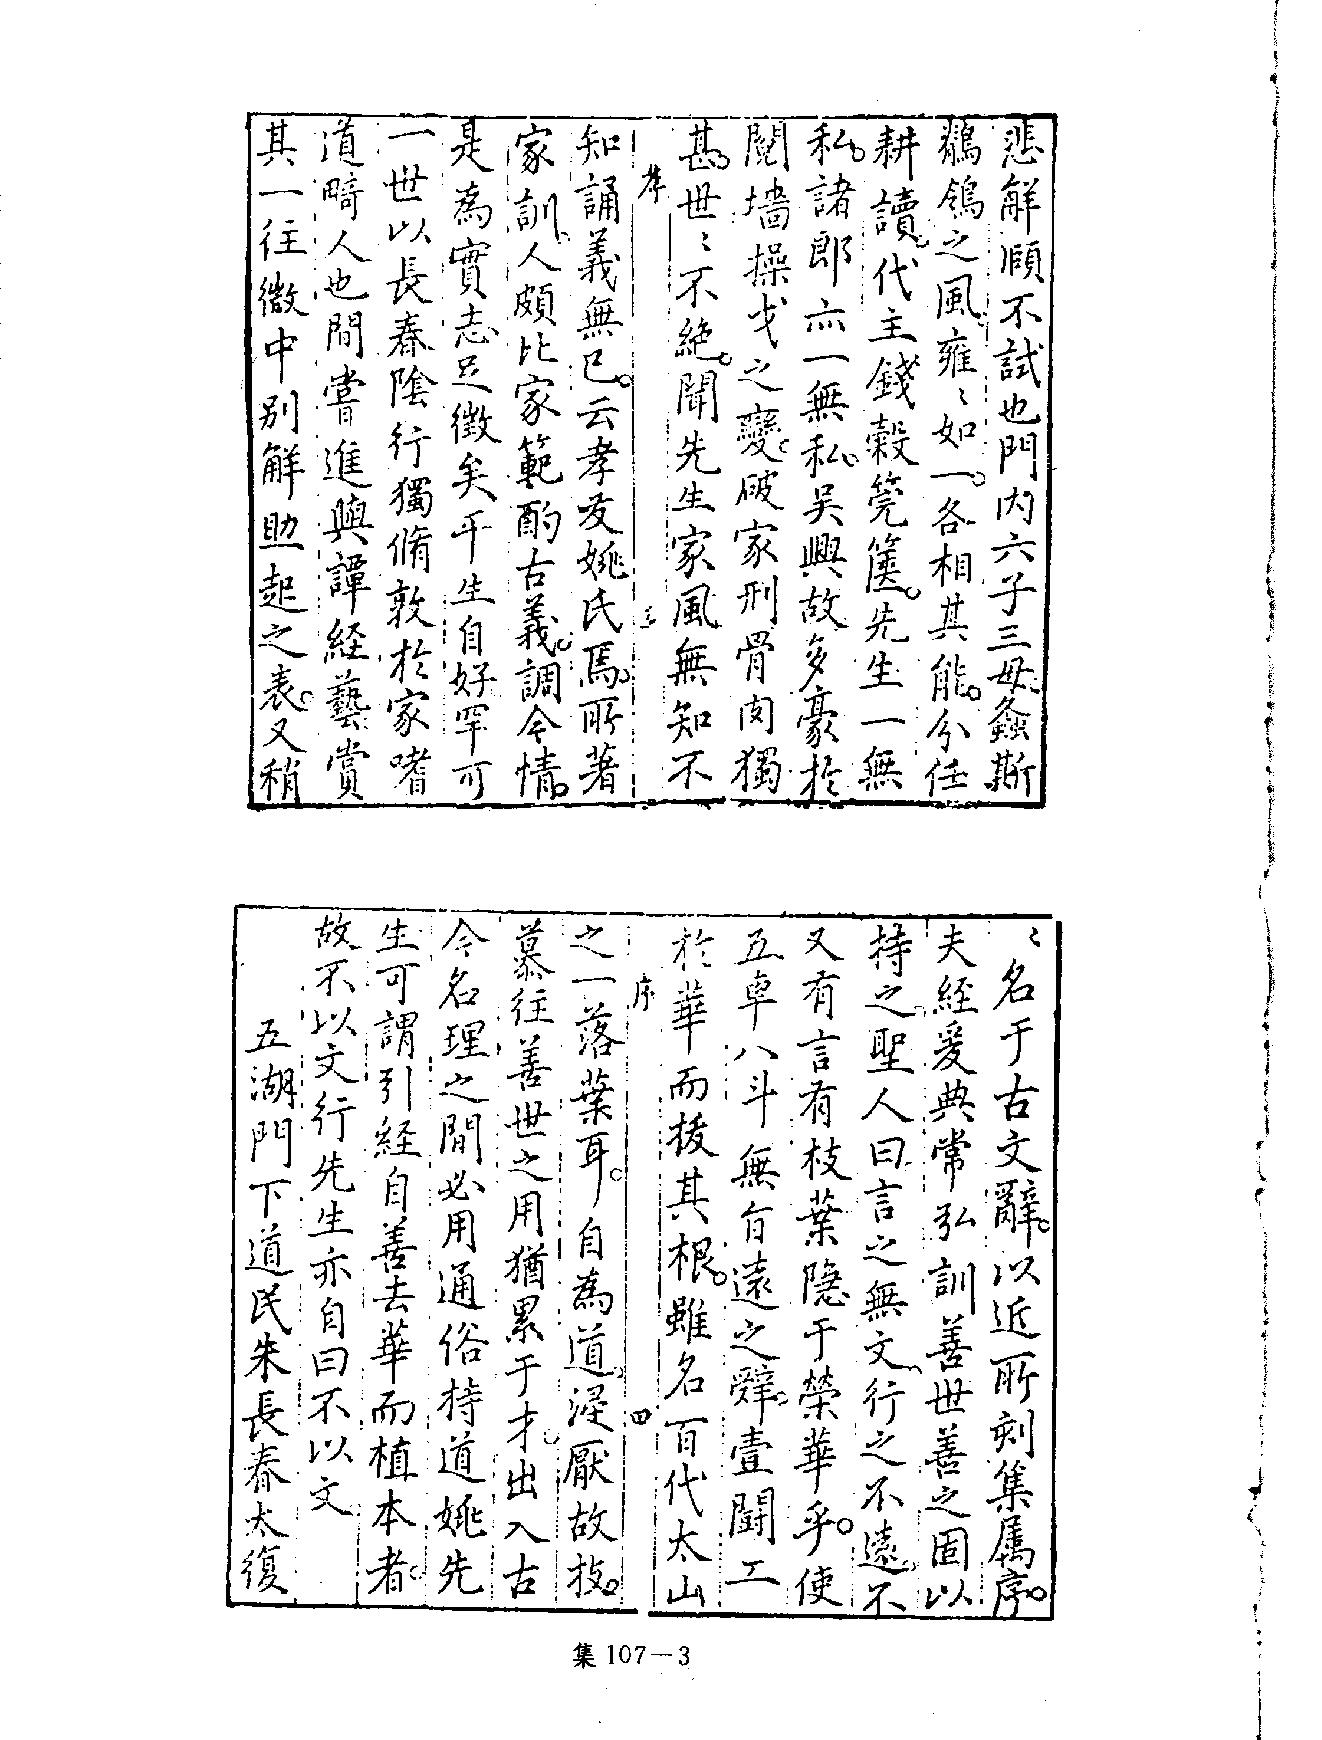 悲解頤不試也門内六子三母螽斯
鶺鴒之風雍〻如一各相其能分任
耕讀代主錢穀筦篋先生一無
私諸郎亦一無私吴興故多豪於
鬩墻操戈之變破家刑骨肉獨
甚世〻不絶聞先生家風無知不
序 三
知誦義無已云孝友姚氏焉所著
家訓人頗比家範酌古義調今情
是為實志足徵矣千生自好罕可
一世以長春陰行獨脩敦於家嗜
道畸人也間嘗進與譚經藝賞
其一往微中别解興起之表又稍
〻名于古文辭以近所刻集属序
夫經爰典常弘訓善世善之固以
持之聖人曰言之無文行之不遠不
又有言有枝葉隱于榮華乎使
五車八斗無旨遠之辭壹鬪工
於華而援其根雖名百代太山
序 四
之一落葉耳自為道浸厭故技
慕往善世之用猶累于才出入古
今名理之間必用通俗持道姚先
生可謂引經自善去華而植本者
故不以文行先生亦自曰不以文
五湖門下道民朱長春太復
集 107－3